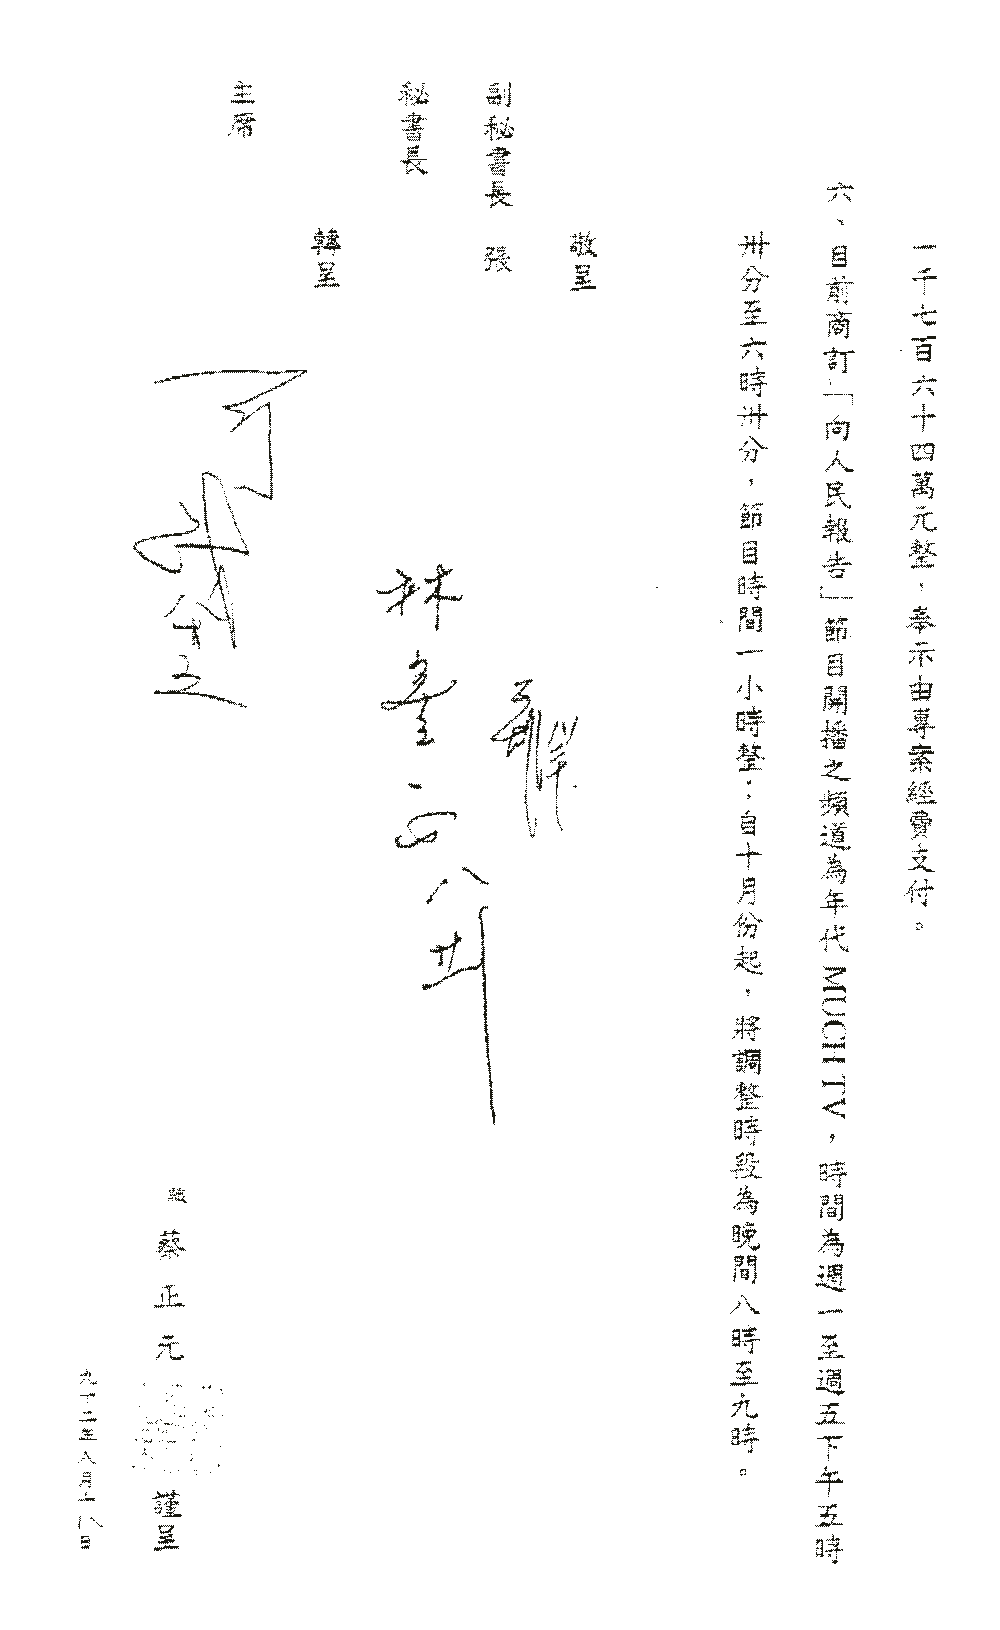 一千七百六十四萬元整，奉示由專案經費支付。
六、目前商訂「向人民報告」節目開播之頻道為年代MUCH TV，時間為週一至週五下午五時
卅分至六時卅分，節目時間一小時整；自十月份起，將調整時段為晚間八時至九時。
敬呈
副秘書長 張
秘書長
林豐正
八
轉呈
主席
可
職 蔡正元 謹呈
九十二年八月十八日